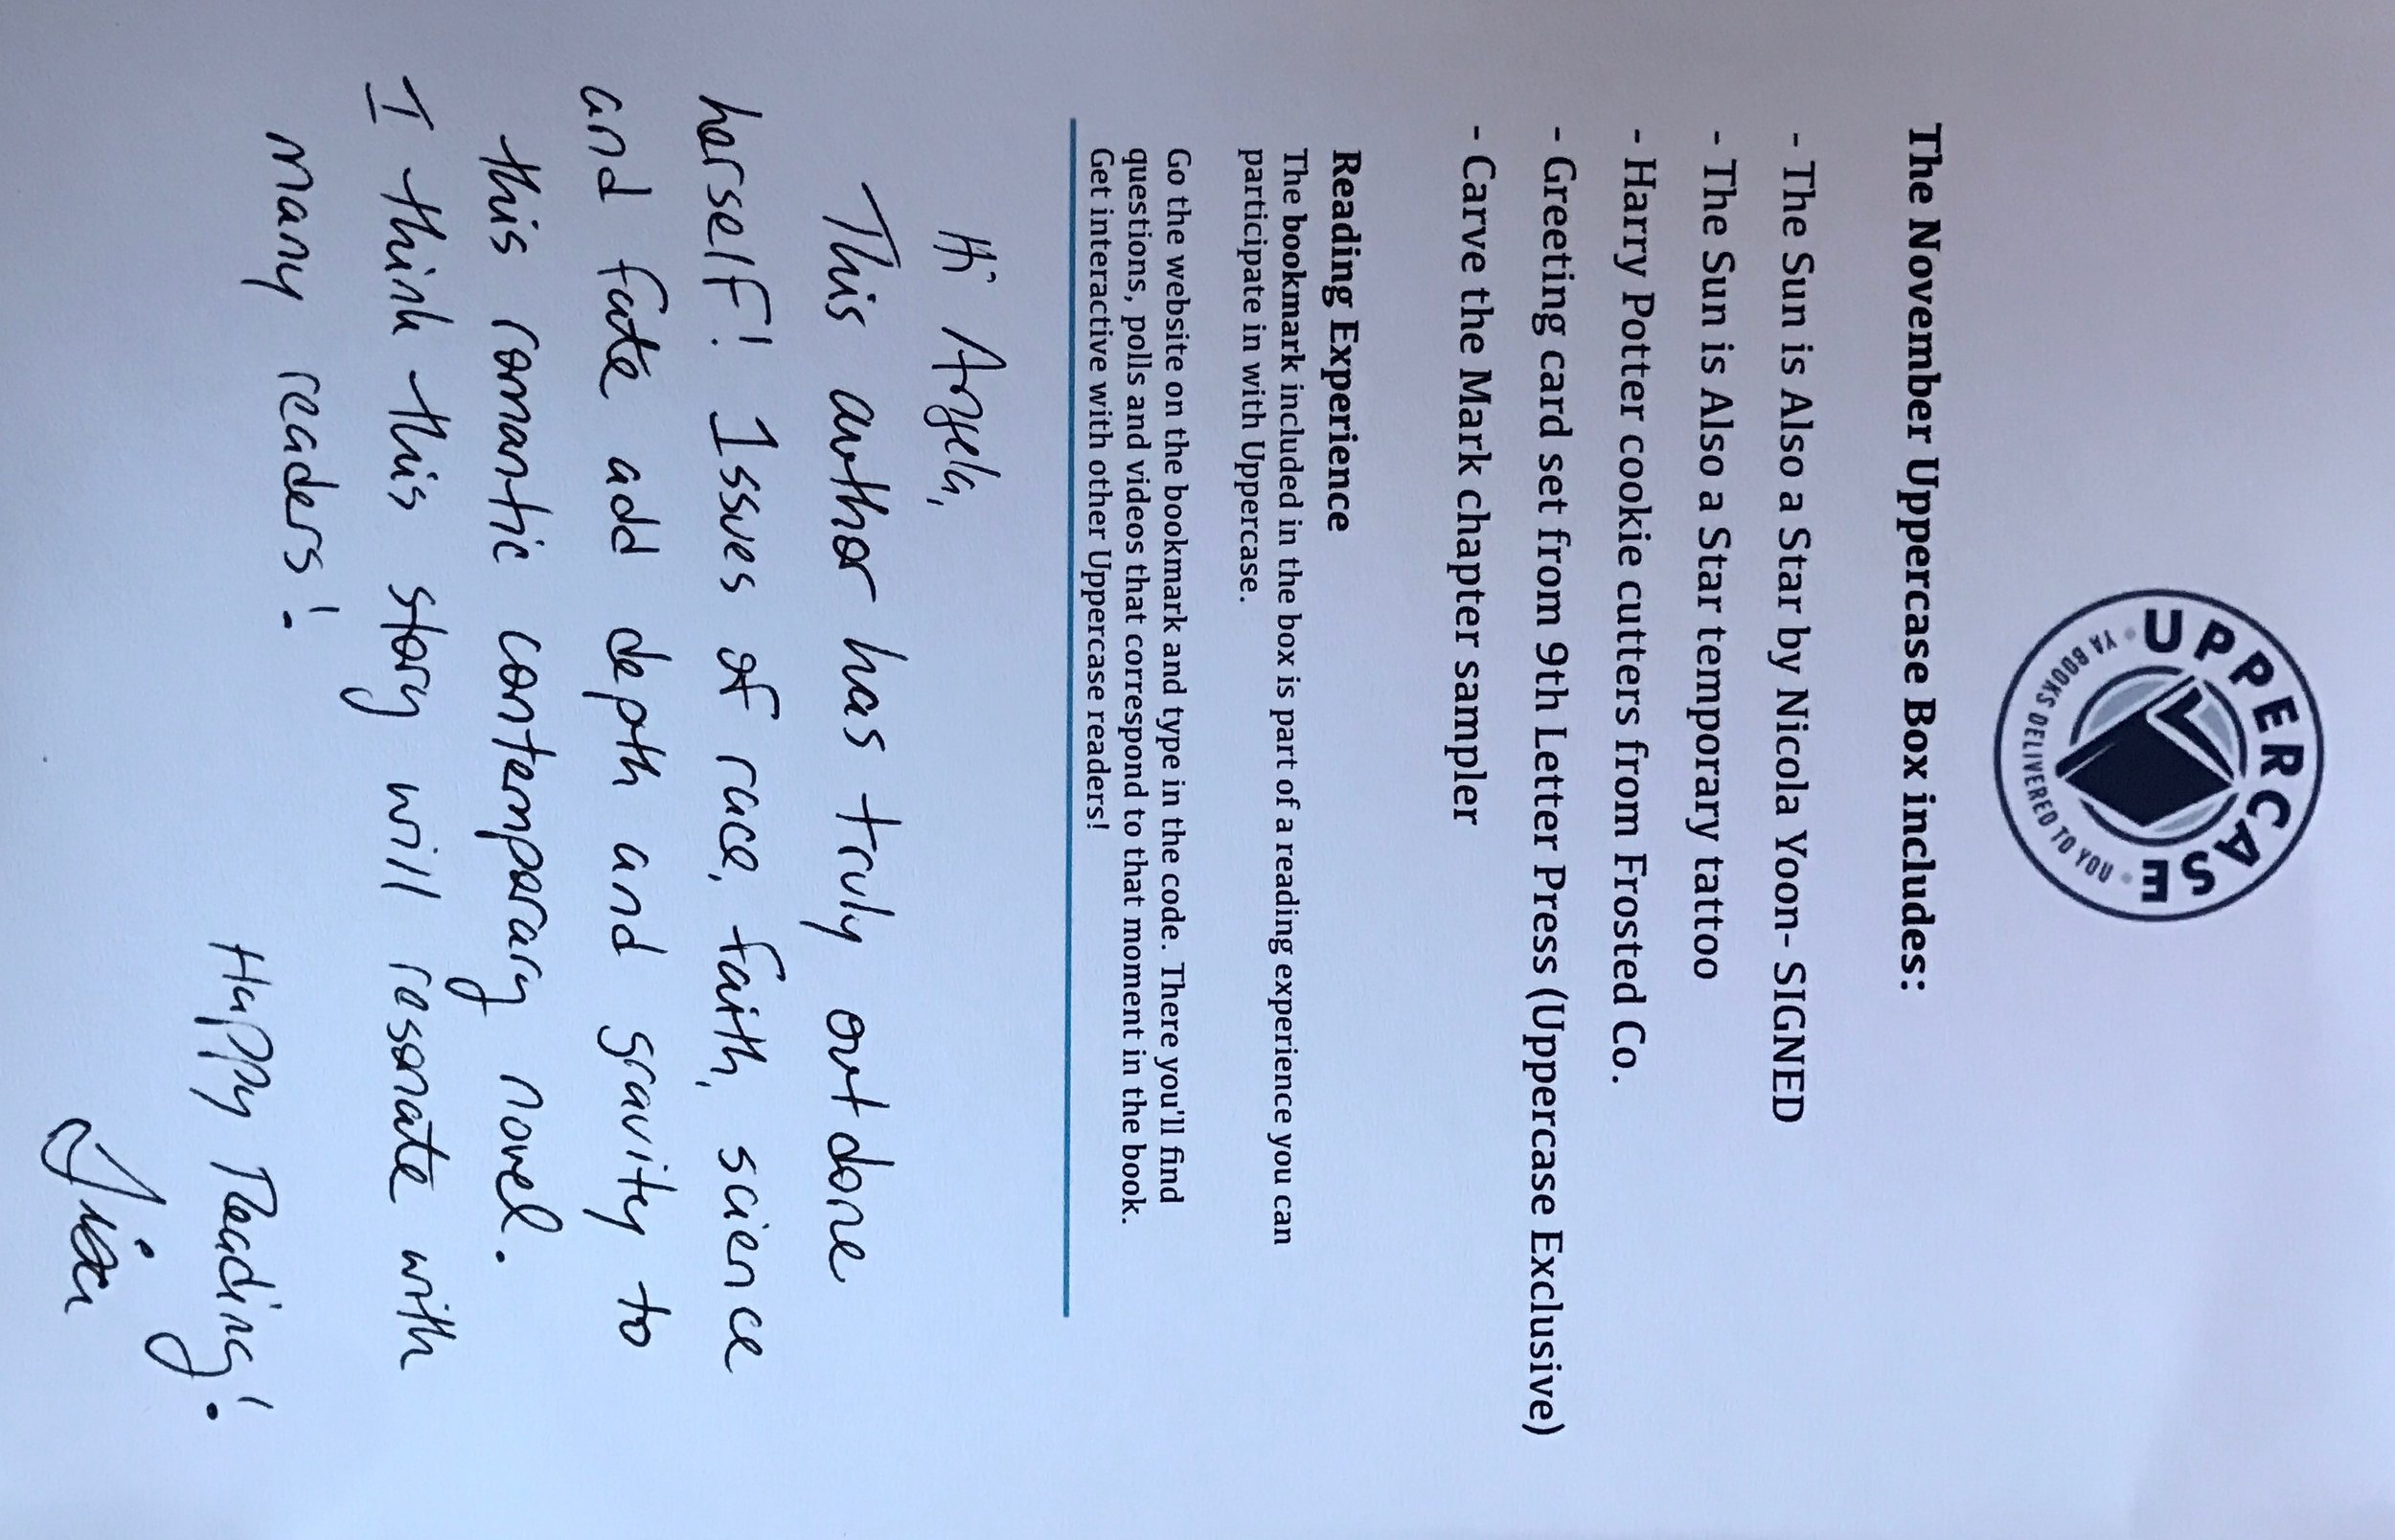 UPPERCASE
YA BOOKS DELIVERED TO YOU
The November Uppercase Box includes:
- The Sun is Also a Star by Nicola Yoon- SIGNED
- The Sun is Also a Star temporary tattoo
- Harry Potter cookie cutters from Frosted Co.
- Greeting card set from 9th Letter Press (Uppercase Exclusive)
- Carve the Mark chapter sampler
Reading Experience
The bookmark included in the box is part of a reading experience you can
participate in with Uppercase.
Go the website on the bookmark and type in the code. There you'll find
questions, polls and videos that correspond to that moment in the book.
Get interactive with other Uppercase readers!
Hi Angela,
This author has truly outdone
herself! Issues of race, faith, science
and fate add depth and gravity to
this romantic contemporary novel.
I think this story will resonate with
many readers!
Happy Reading!